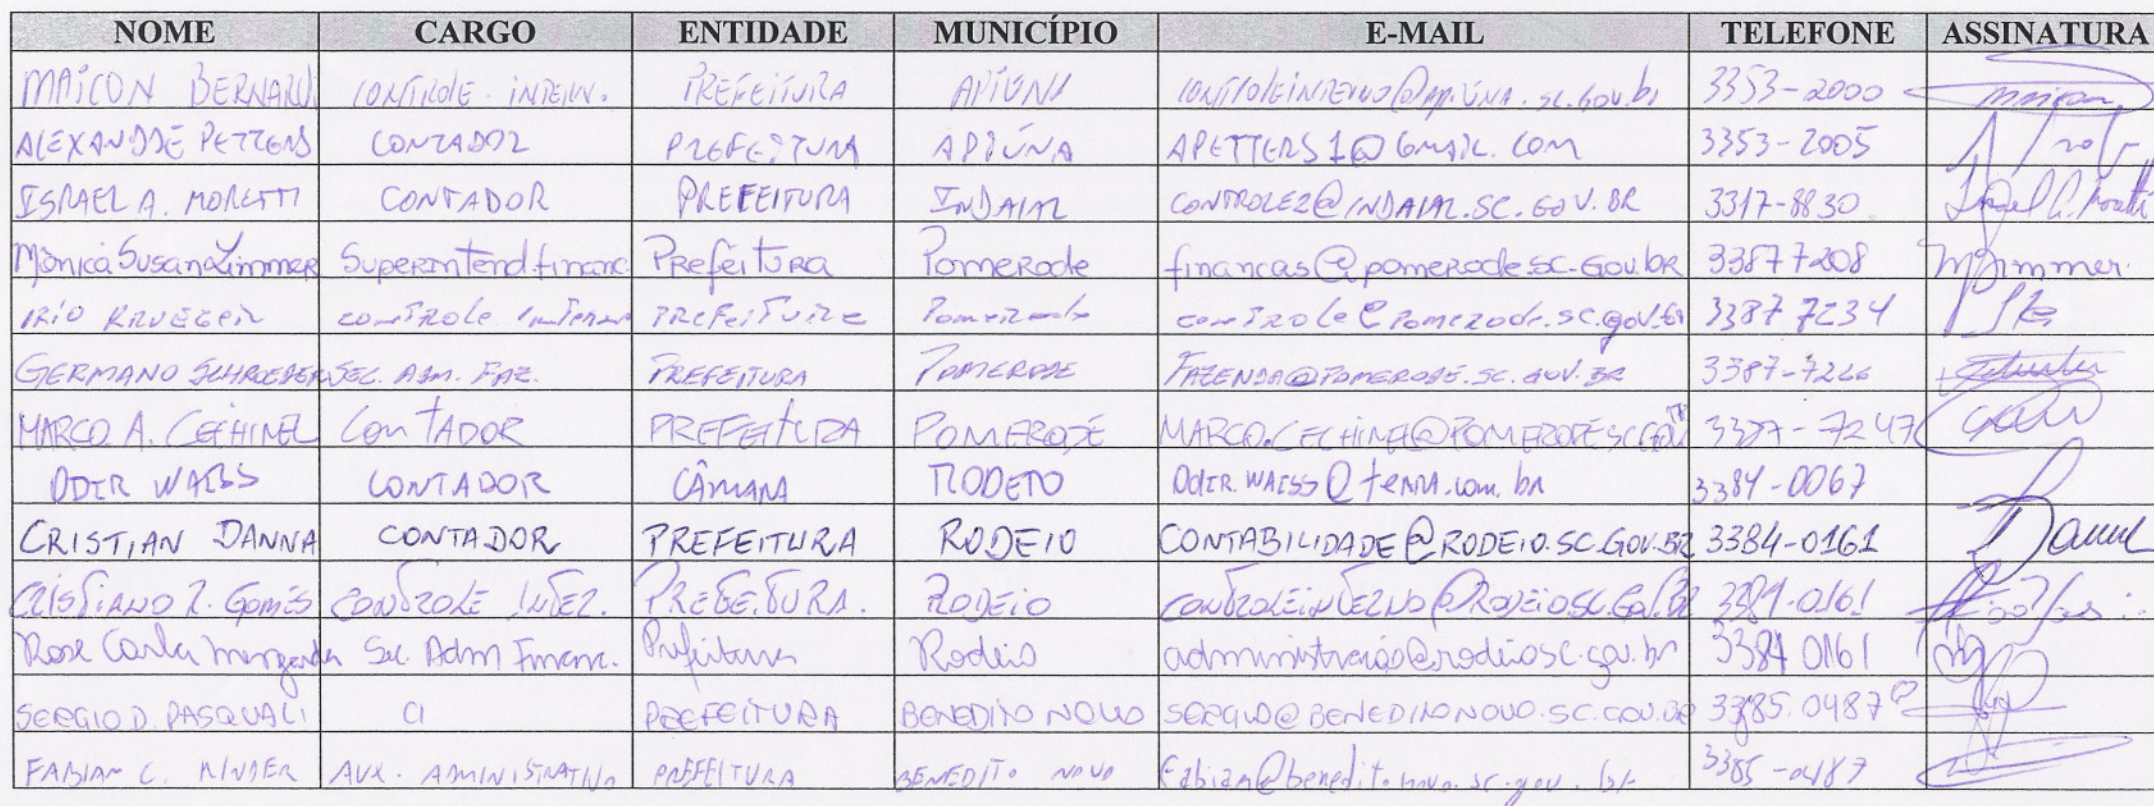 NOME CARGO ENTIDADE MUNICÍPIO E-MAIL TELEFONE ASSINATURA
MAICON BERNARDI CONTROLE INTERN. PREFEITURA APIÚNA controleinterno@apiuna.sc.gov.br 3353-2000 maicon
ALEXANDRE PETTERS CONTADOR PREFEITURA APIÚNA APETTERS1@GMAIL.COM 3353-2005
ISRAEL A. MORETTI CONTADOR PREFEITURA INDAIAL CONTROLE2@INDAIAL.SC.GOV.BR 3317-8830 Israel A. Moretti
Mônica Susana Zimmer Superintend. financ. Prefeitura Pomerode financas@pomerode.sc.gov.br 33877208 MZimmer.
IRIO KRUEGER controle interno PREFEITURA Pomerode controle@pomerode.sc.gov.br 3387 7234
GERMANO SCHROEDER SEC. ADM. FAZ. PREFEITURA POMERODE FAZENDA@POMERODE.SC.GOV.BR 3387-7226
MARCO A. CECHINEL CONTADOR PREFEITURA POMERODE MARCO.CECHINEL@POMERODE.SC.GOV 3387-7247
ODIR WAISS CONTADOR CÂMARA RODEIO Odir.WAISS@terra.com.br 3384-0067
CRISTIAN DANNA CONTADOR PREFEITURA RODEIO CONTABILIDADE@RODEIO.SC.GOV.BR 3384-0161
CRISTIANO R. GOMES CONTROLE INTER. PREFEITURA. RODEIO CONTROLEINTERNO@RODEIO.SC.GOV.BR 3384-0161
Rose Carla Sec. Adm Financ. Prefeitura Rodeio administração@rodeio.sc.gov.br 3384 0161
SERGIO D. PASQUALI CI PREFEITURA BENEDITO NOVO SERGIO@BENEDITONOVO.SC.GOV.BR 3385.0487
FABIAN C. KINDER AUX. ADMINISTRATIVO PREFEITURA BENEDITO NOVO fabian@beneditonovo.sc.gov.br 3385-0487